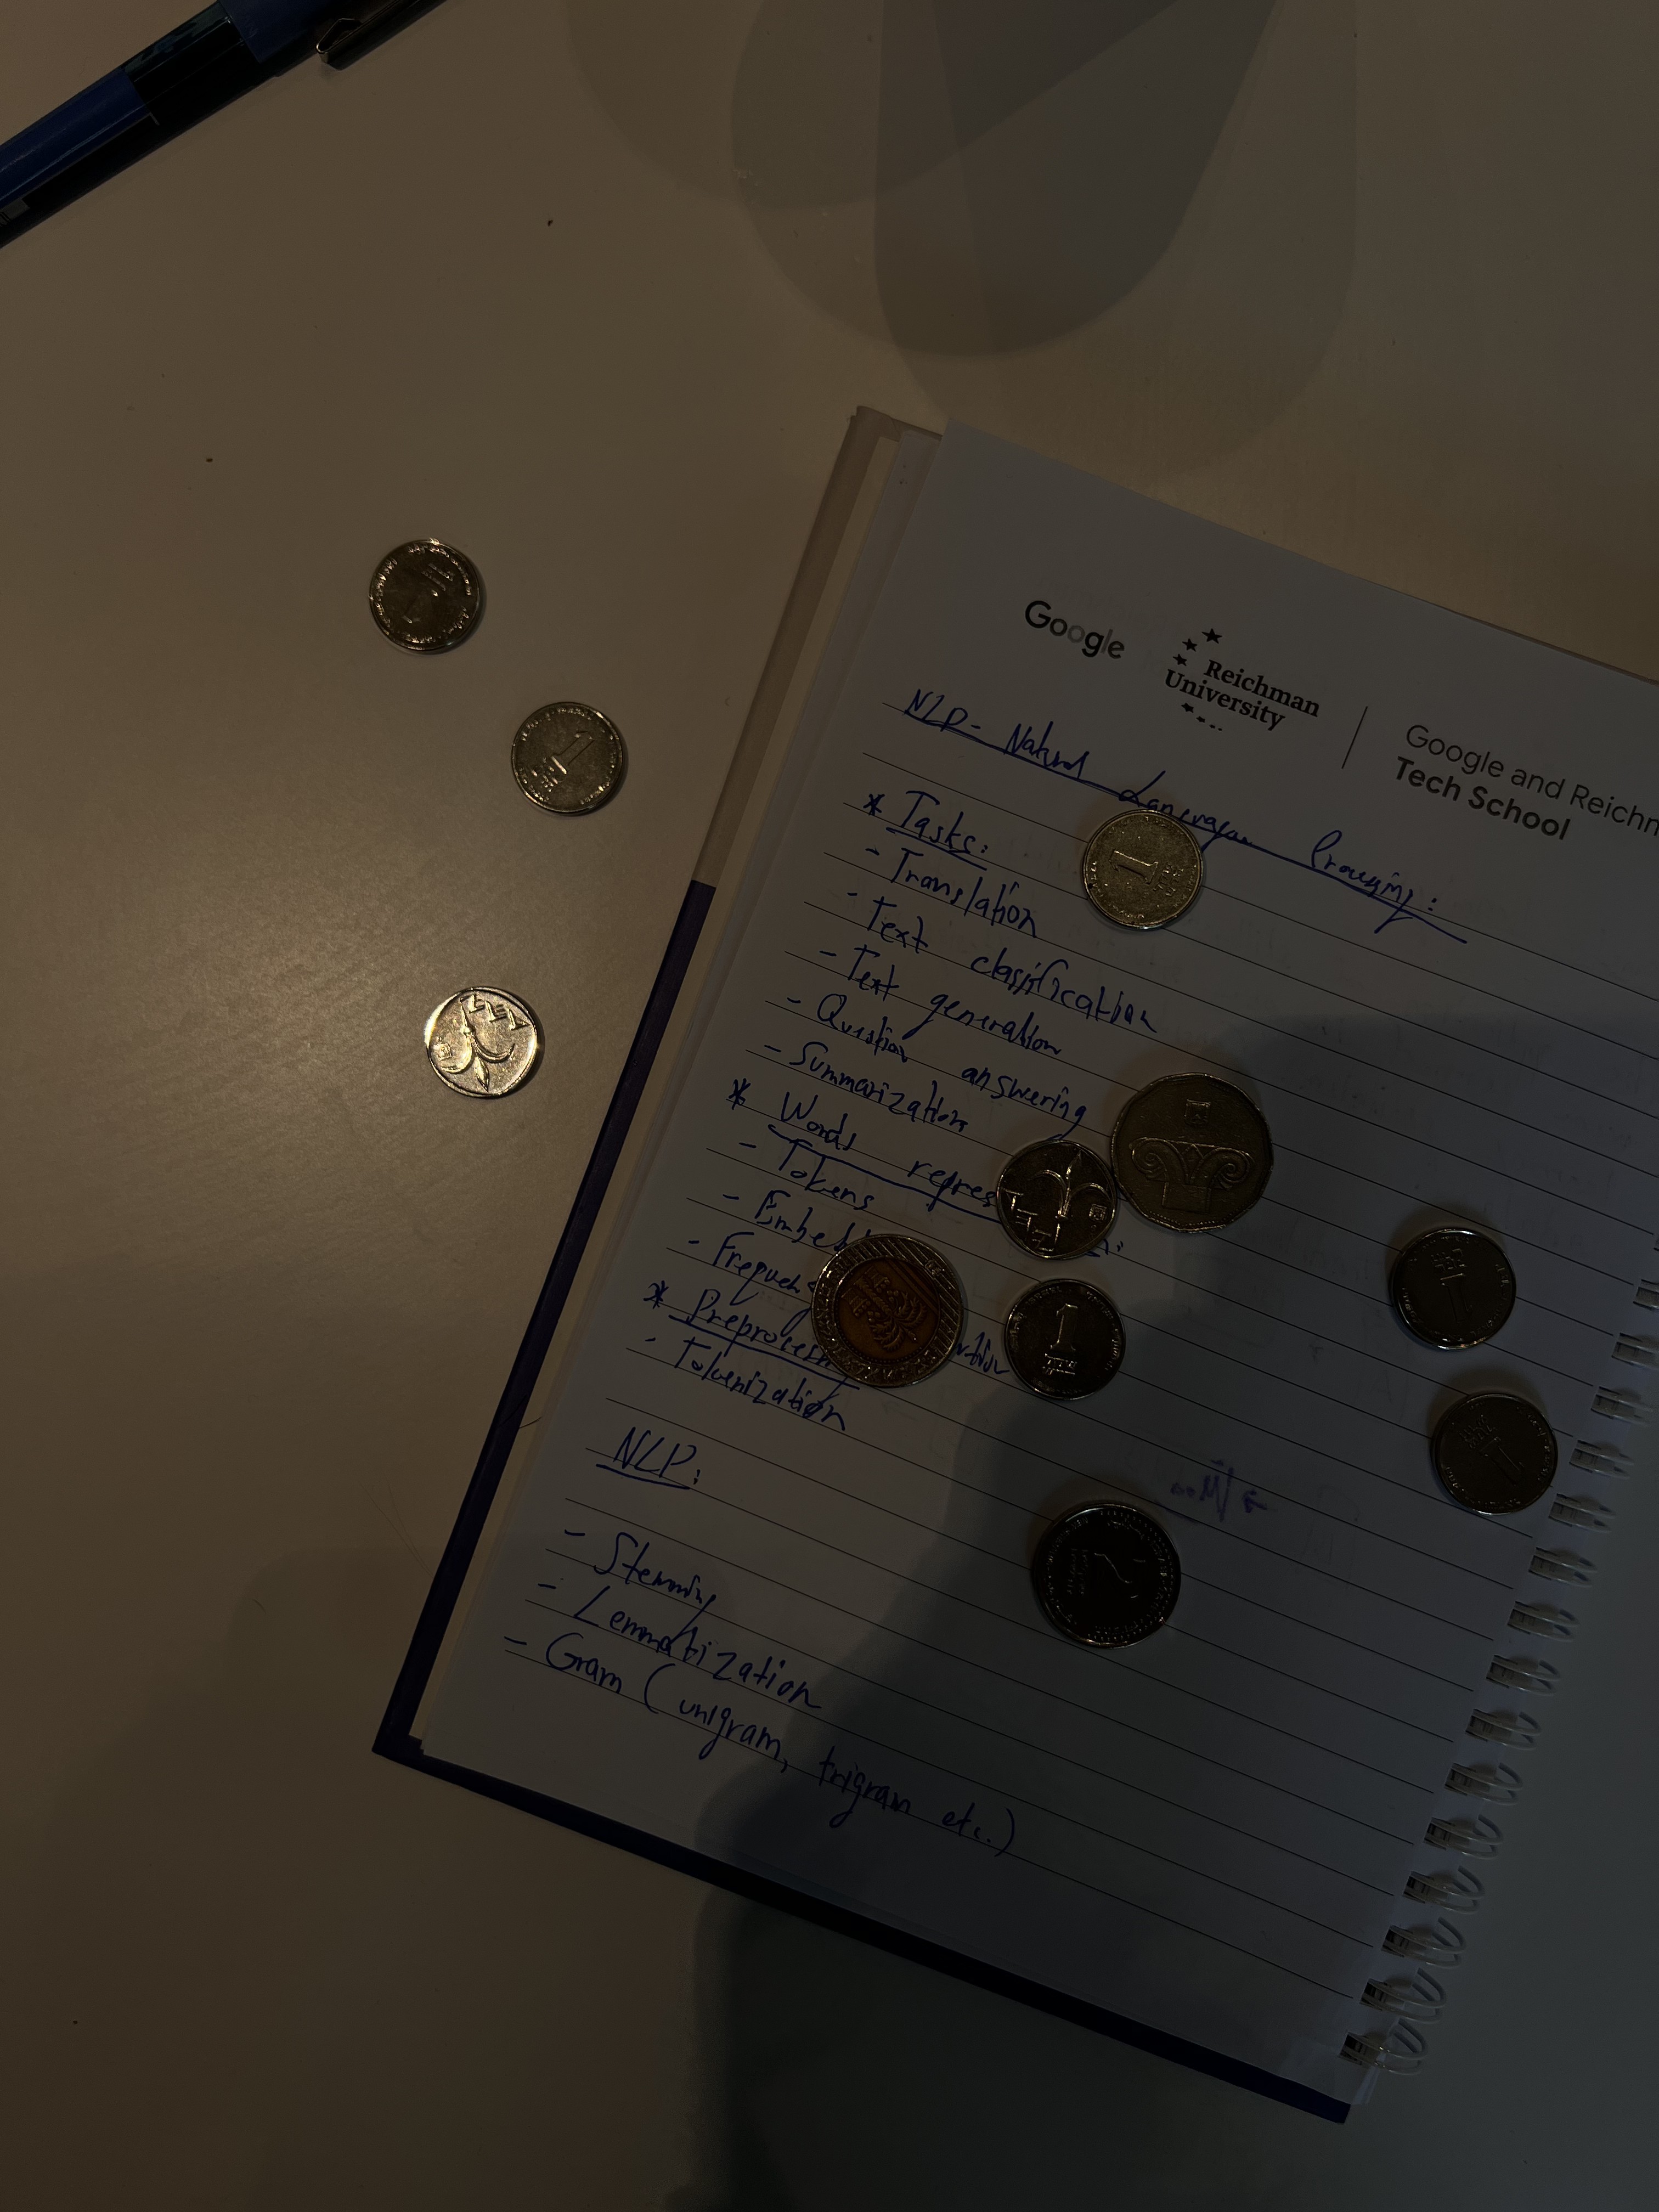 Google
Reichman
University
Google and Reichm
Tech School
NLP - Natural Languagae Processing:
* Tasks:
- Translation
- Text classification
- Text generation
- Question answering
- Summarization
* Words repres
- Tokens
- Embedd
- Frequenc
* Preprocess
- Tokenization
NLP:
- Stemming
- Lemmatization
- Gram (unigram, trigram etc.)
1
1
1
1
1
1